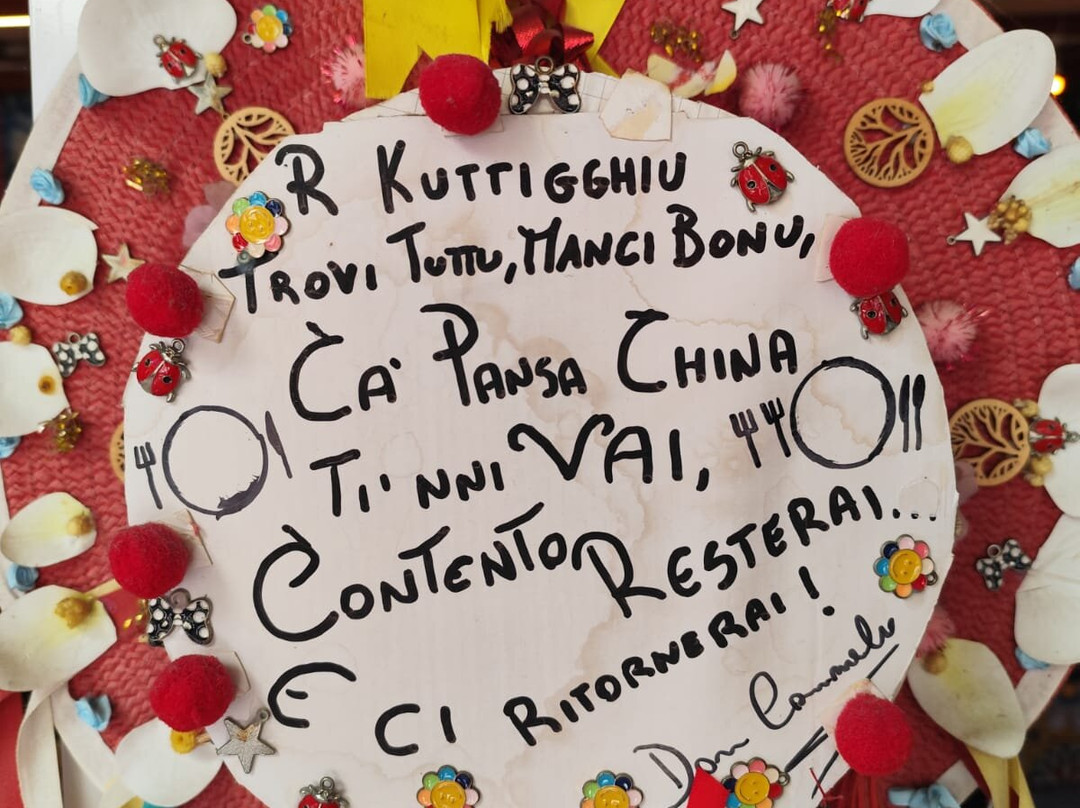 R KUTTIGGHIU
TROVI TUTTU, MANCI BONU,
CA' PANSA CHINA
TI'NNI VAI,
CONTENTO RESTERAI...
E CI RITORNERAI!
Don Carmelo